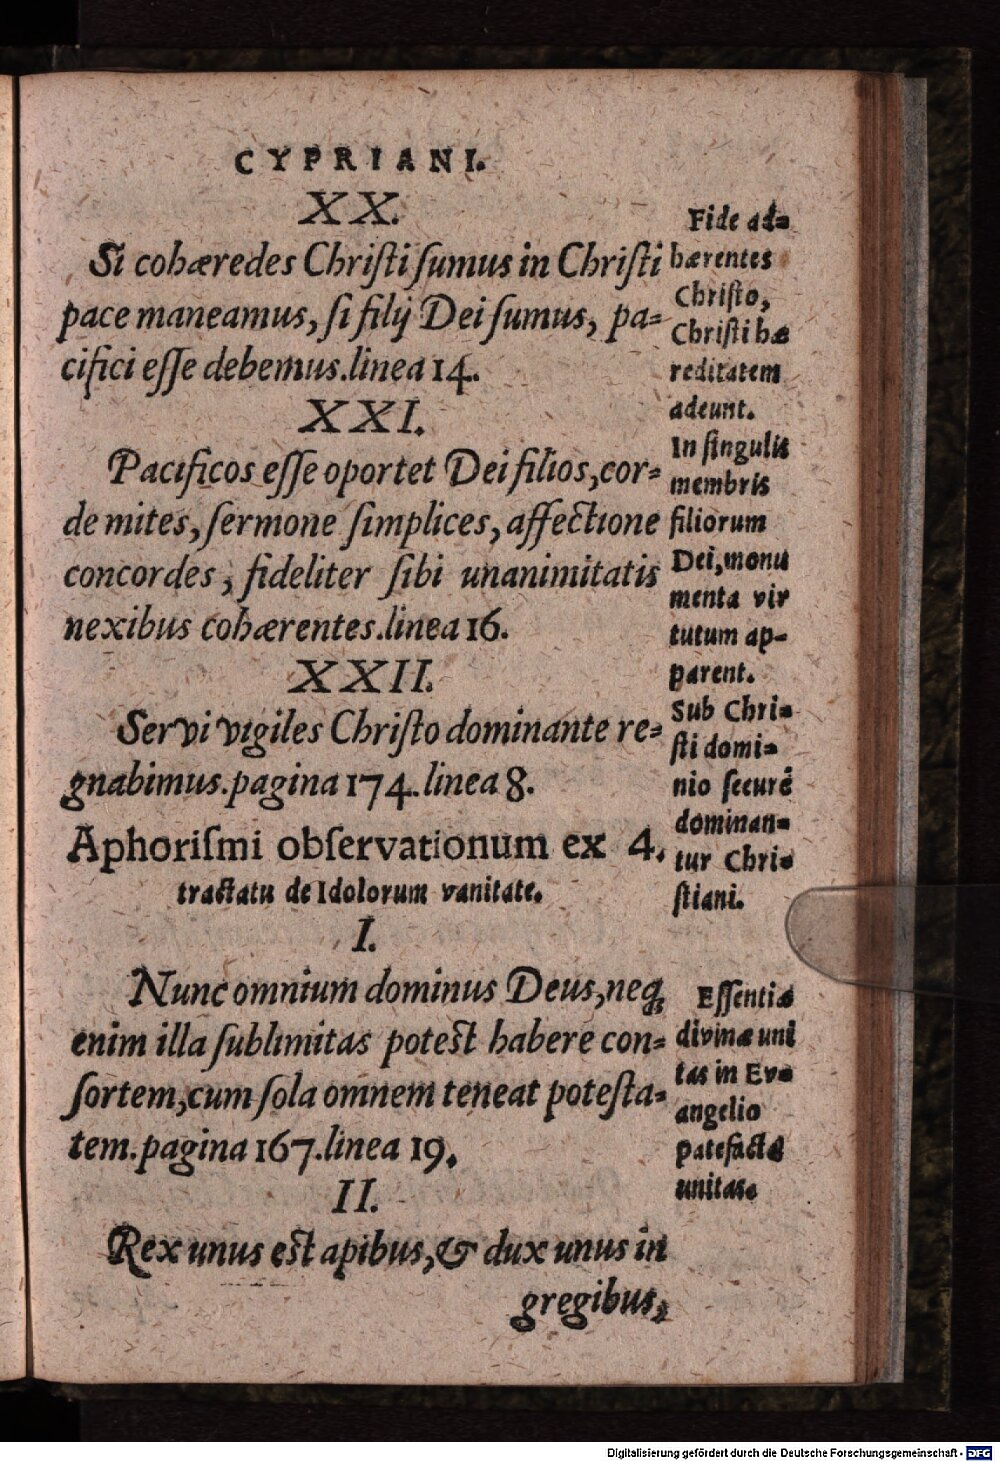 CYPRIANI.
XX.
Si cohæredes Christi sumus in Christi
pace maneamus, si filij Dei sumus, pa-
cifici esse debemus. linea 14.
XXI.
Pacificos esse oportet Dei filios, cor-
de mites, sermone simplices, affectione
concordes, fideliter sibi unanimitatis
nexibus cohærentes. linea 16.
XXII.
Servi vigiles Christo dominante re-
gnabimus. pagina 174. linea 8.
Aphorismi observationum ex 4.
tractatu de Idolorum vanitate.
I.
Nunc omnium dominus Deus, neq;
enim illa sublimitas potest habere con-
sortem, cum sola omnem teneat potesta-
tem. pagina 167. linea 19.
II.
Rex unus est apibus, & dux unus in
gregibus,
Fide ad-
hærentes
Christo,
Christi hæ
reditatem
adeunt.
In singulis
membris
filiorum
Dei, monu
menta vir
tutum ap-
parent.
Sub Chri-
sti domi-
nio securè
dominan-
tur Chri-
stiani.
Essentiæ
divinæ uni
tas in Ev-
angelio
patefacta
unitas.
Digitalisierung gefördert durch die Deutsche Forschungsgemeinschaft - DFG